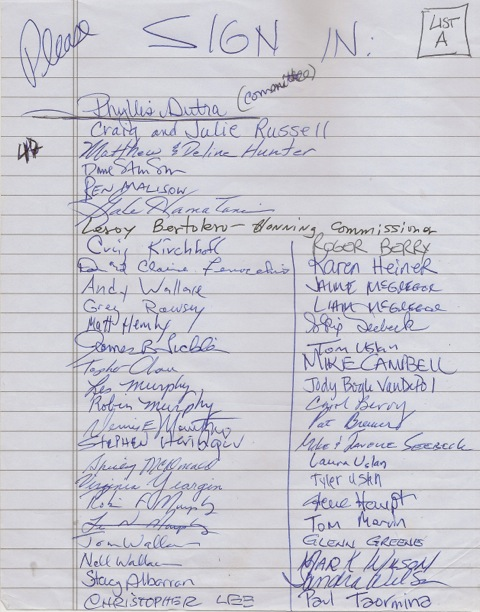 Please SIGN IN:
LIST A
Phyllis Dutra (committee)
Craig and Julie Russell
Matthew & Deline Hunter
Dave Stimson
BEN MALISOW
Gale
Leroy Bertolero - Planning Commissioner
Craig Kirchhoff
Claire
Andy Wallace
Greg Rowsey
Matt Hemby
James B.
Les Murphy
Robin Murphy
Dennis E.
STEPHEN
Shirley McDonald
Virginia Yeargin
Robin F. Murphy
Tom Wallace
Nell Wallace
Stacy Albarran
CHRISTOPHER LEE
ROGER BERRY
Karen Heiner
JAIME McGREGOR
LIAM McGREGOR
Skip Seebeck
Tom Uslan
MIKE CAMPBELL
Jody Bogle VanDePol
Carol Berry
Pat
Mike & SEEBECK
Laura Uslan
Tyler Uslan
Steve Haupt
Tom Marvin
GLENN GREENE
MARK WILSON
Sandra Wilson
Paul Taormina